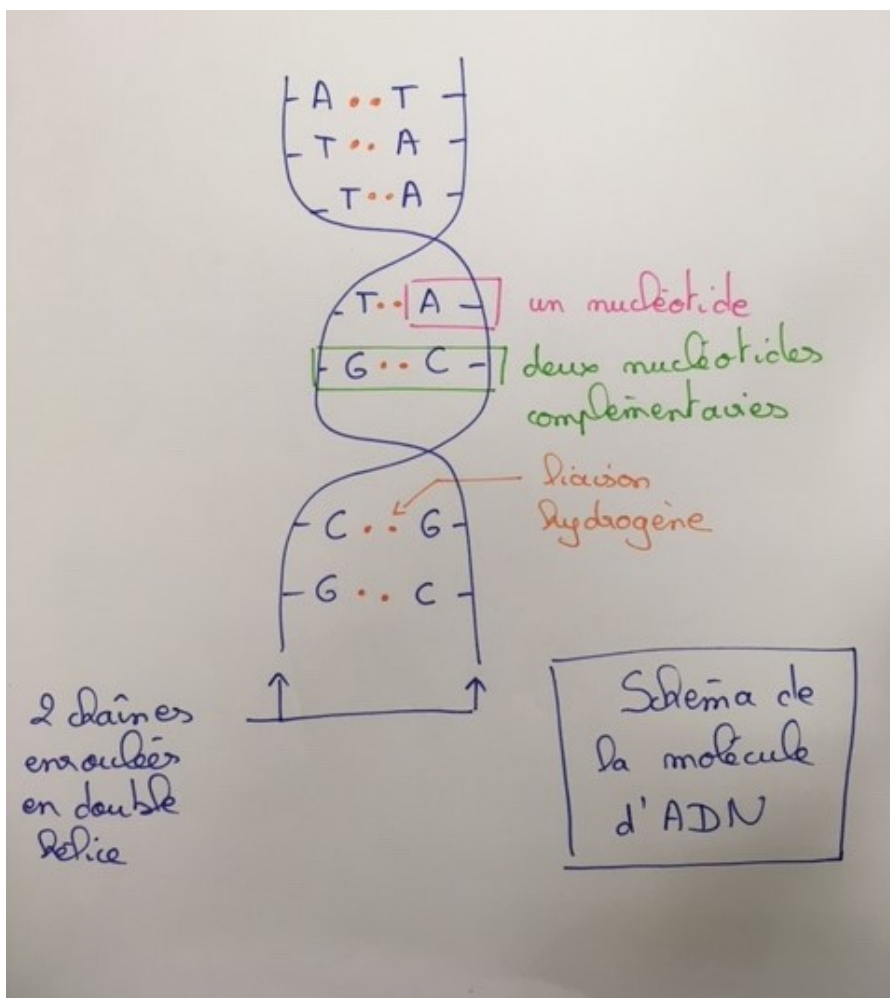 A •• T
T •• A
T •• A
T •• A un nucléotide
G •• C deux nucléotides
complémentaires
liaison
hydrogène
C •• G
G •• C
2 chaînes
enroulées
en double
hélice
Schéma de
la molécule
d'ADN